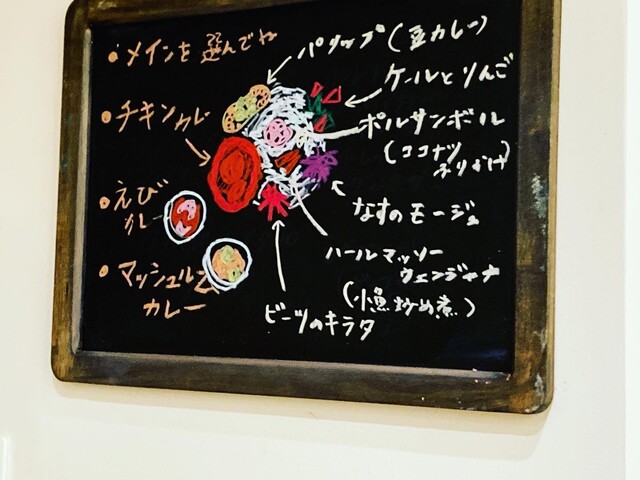 ・メインを選んでね
・チキンカレー
・えび
カレー
・マッシュルーム
カレー
パリップ(豆カレー)
ケールとりんご
ポルサンボール
(ココナツ
ふりかけ)
なすのモージュ
ハールマッソー
ウェンジャナ
(小魚炒め煮)
ビーツのキラタ